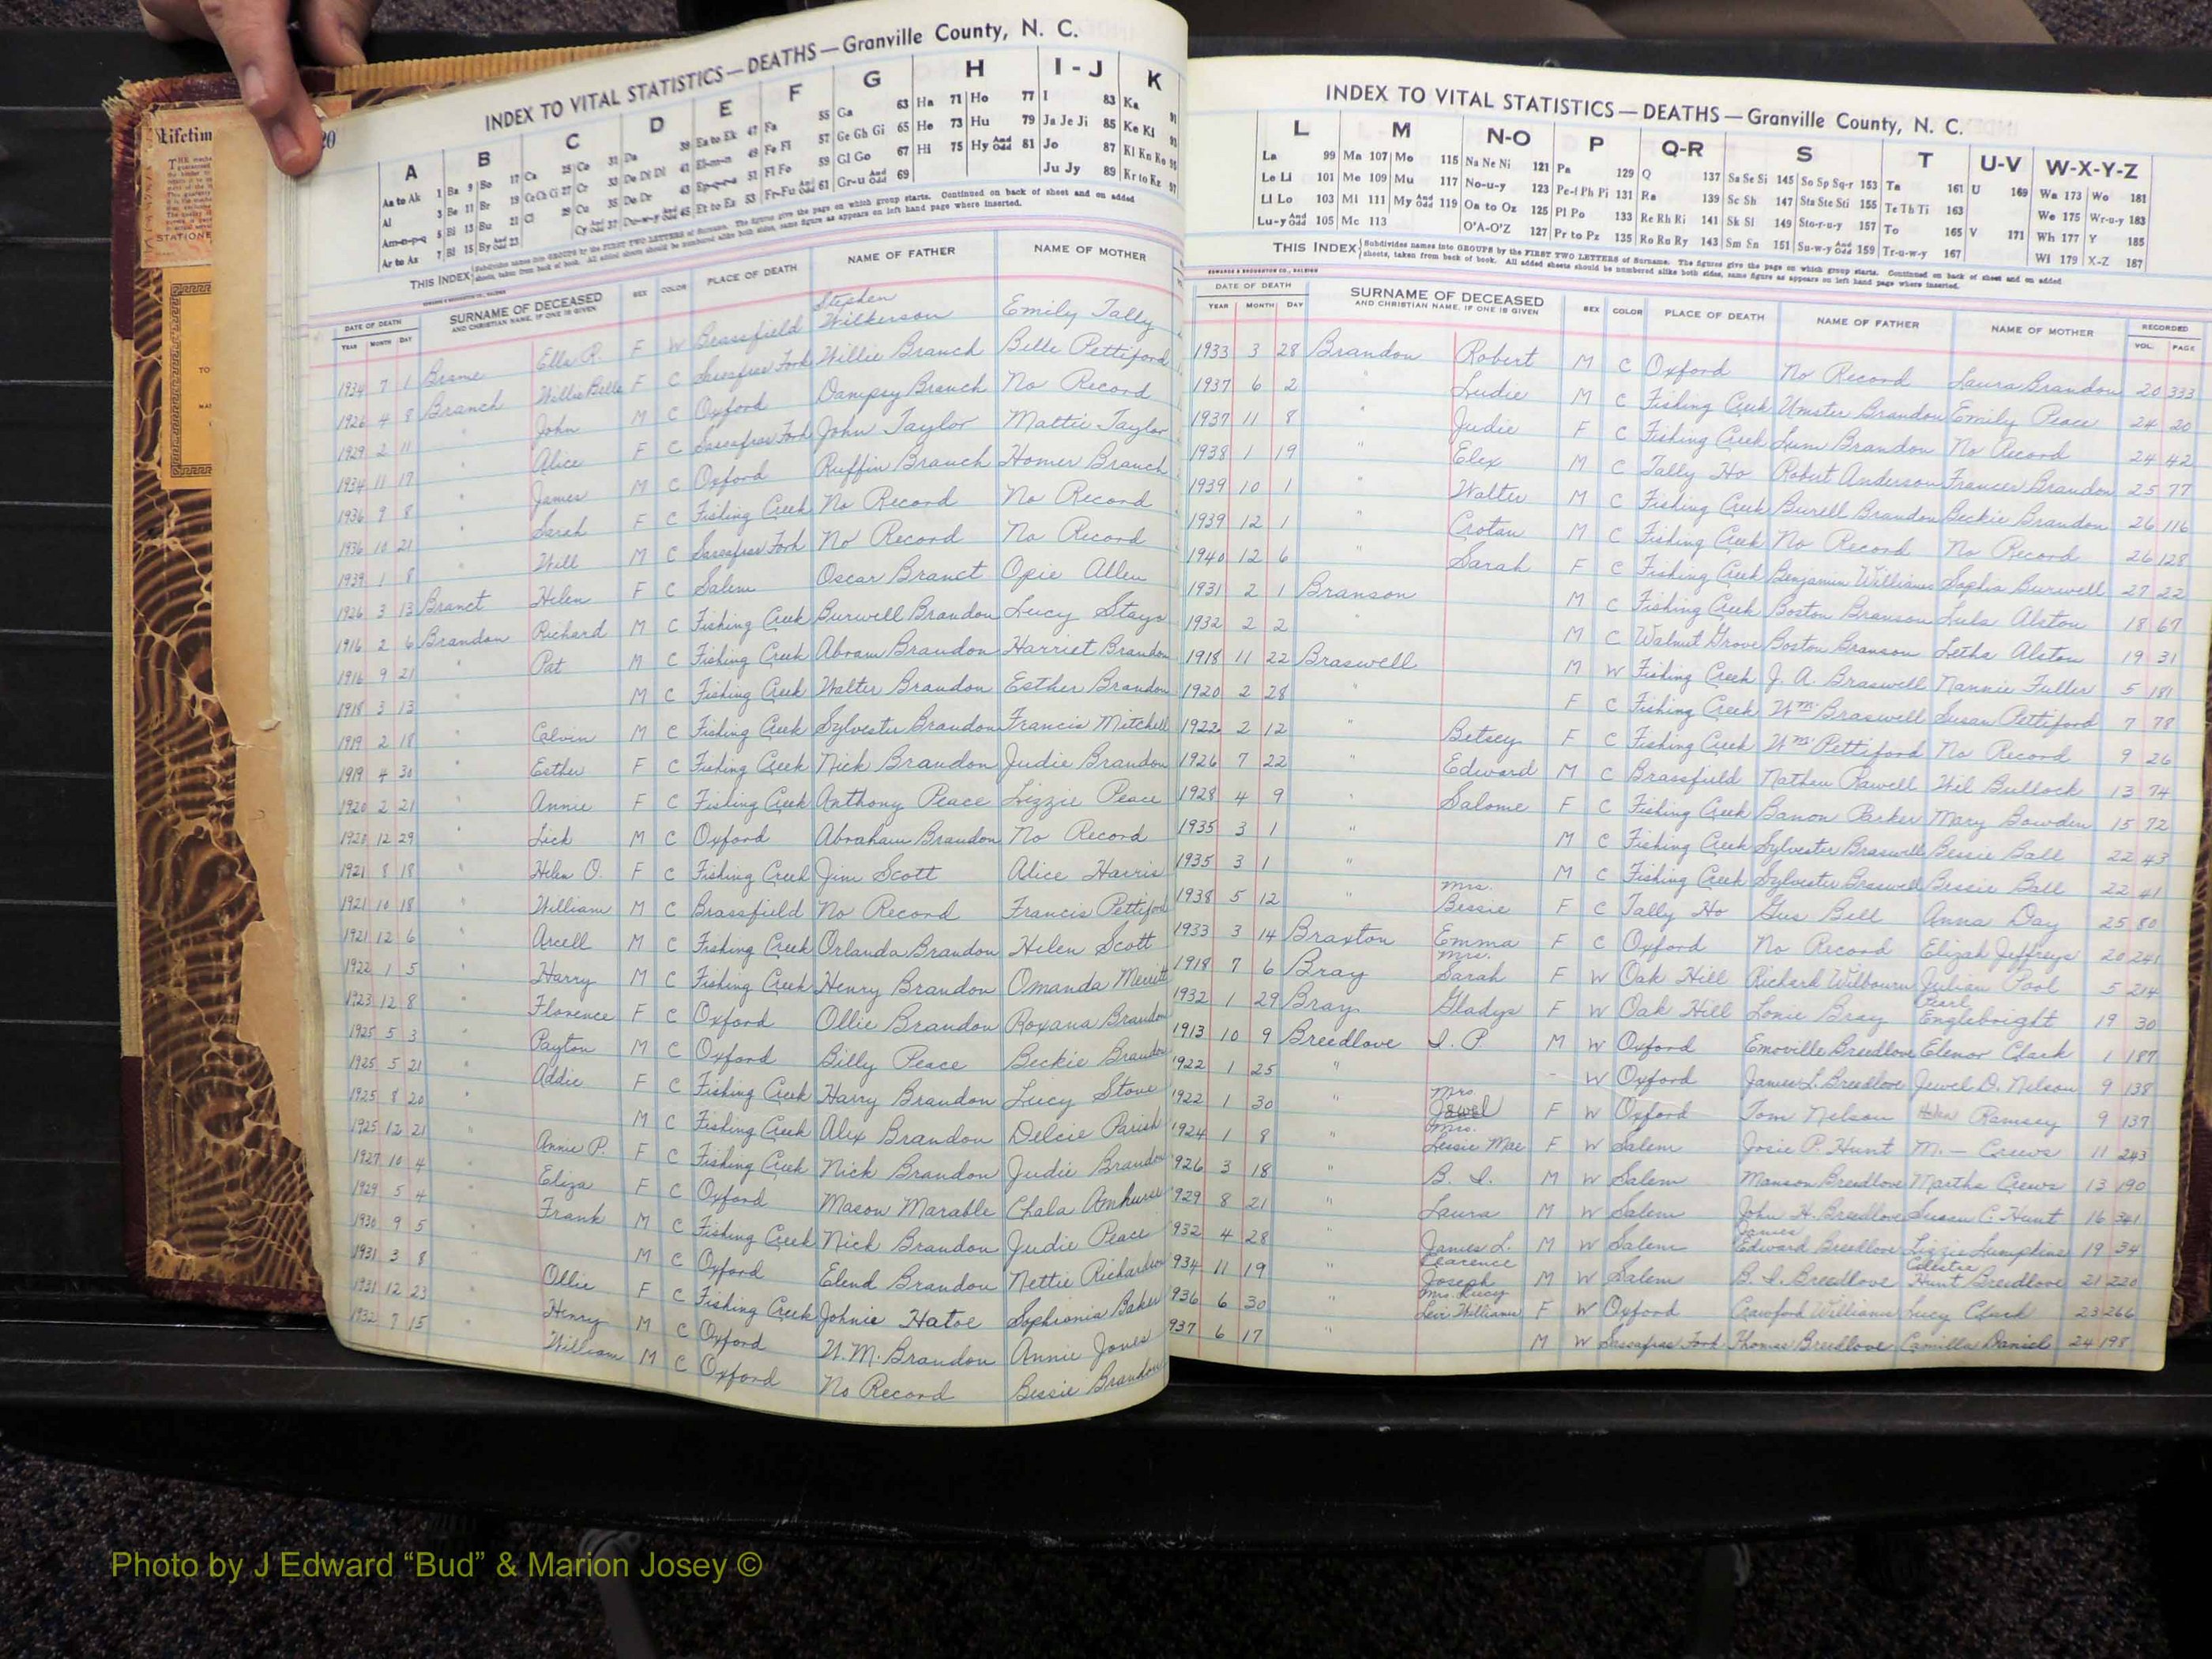 20
INDEX TO VITAL STATISTICS — DEATHS — Granville County, N. C.
A B C D E F G H I - J K
THIS INDEX Subdivides names into GROUPS by the FIRST TWO LETTERS of Surname. The figures give the page on which group starts. Continued on back of sheet and on added sheets, taken from back of book. All added sheets should be numbered alike both sides, same figure as appears on left hand page where inserted.
DATE OF DEATH SURNAME OF DECEASED SEX COLOR PLACE OF DEATH NAME OF FATHER NAME OF MOTHER
YEAR MONTH DAY AND CHRISTIAN NAME, IF ONE IS GIVEN
1934 7 1 Brame Ella R. F W Brassfield Stephen Wilkerson Emily Tally
1926 4 8 Branch Willie Belle F C Sassafras Fork Willie Branch Belle Pettiford
1929 2 11 " John M C Oxford Dampsy Branch No Record
1934 11 17 " Alice F C Sassafras Fork John Taylor Mattie Taylor
1936 9 8 " James M C Oxford Ruffin Branch Homer Branch
1936 10 21 " Sarah F C Fishing Creek No Record No Record
1939 1 8 " Will M C Sassafras Fork No Record No Record
1926 3 13 Branct Helen F C Salem Oscar Branct Opie Allen
1916 2 6 Brandon Richard M C Fishing Creek Burwell Brandon Lucy Stayo
1916 9 21 " Pat M C Fishing Creek Abram Brandon Harriet Brandon
1918 3 13 M C Fishing Creek Walter Brandon Esther Brandon
1919 2 18 " Calvin M C Fishing Creek Sylvester Brandon Francis Mitchell
1919 4 30 " Esther F C Fishing Creek Nick Brandon Judie Brandon
1920 2 21 " Annie F C Fishing Creek Anthony Peace Lizzie Peace
1920 12 29 " Lick M C Oxford Abraham Brandon No Record
1921 8 18 " Helen O. F C Fishing Creek Jim Scott Alice Harris
1921 10 18 " William M C Brassfield No Record Francis Pettiford
1921 12 6 " Arcell M C Fishing Creek Orlanda Brandon Helen Scott
1922 1 5 " Harry M C Fishing Creek Henry Brandon Omanda Merritt
1923 12 8 " Florence F C Oxford Ollie Brandon Roxana Brandon
1925 5 3 " Payton M C Oxford Billy Peace Beckie Brandon
1925 5 21 " Addie F C Fishing Creek Harry Brandon Lucy Stove
1925 8 20 " M C Fishing Creek Alex Brandon Delcie Parish
1925 12 21 " Annie P. F C Fishing Creek Nick Brandon Judie Brandon
1927 10 4 Eliza F C Oxford Mason Marable Chala Amhurse
1929 5 4 Frank M C Fishing Creek Nick Brandon Judie Peace
1930 9 5 M C Oxford Elend Brandon Nettie Richardson
1931 3 8 Ollie F C Fishing Creek Johnie Hatoe Sophronia Baker
1931 12 23 Henry M C Oxford W. M. Brandon Annie Jones
1932 7 15 William M C Oxford No Record Bessie Brandon
INDEX TO VITAL STATISTICS — DEATHS — Granville County, N. C.
L M N-O P Q-R S T U-V W-X-Y-Z
La 99 Ma 107 Mo 115 Na Ne Ni 121 Pa 129 Q 137 Sa Se Si 145 So Sp Sq-r 153 Ta 161 U 169 Wa 173 Wo 181
Le Li 101 Me 109 Mu 117 No-u-y 123 Pe-f Ph Pi 131 Ra 139 Sc Sh 147 Sta Ste Sti 155 Te Th Ti 163 We 175 Wr-u-y 183
Ll Lo 103 Mi 111 My And Odd 119 Oa to Oz 125 Pl Po 133 Re Rh Ri 141 Sk Sl 149 Sto-r-u-y 157 To 165 V 171 Wh 177 Y 185
Lu-y And Odd 105 Mc 113 O'A-O'Z 127 Pr to Pz 135 Ro Ru Ry 143 Sm Sn 151 Su-w-y And Odd 159 Tr-u-w-y 167 Wi 179 X-Z 187
THIS INDEX Subdivides names into GROUPS by the FIRST TWO LETTERS of Surname. The figures give the page on which group starts. Continued on back of sheet and on added sheets, taken from back of book. All added sheets should be numbered alike both sides, same figure as appears on left hand page where inserted.
EDWARDS & BROUGHTON CO., RALEIGH
DATE OF DEATH SURNAME OF DECEASED SEX COLOR PLACE OF DEATH NAME OF FATHER NAME OF MOTHER RECORDED
YEAR MONTH DAY AND CHRISTIAN NAME, IF ONE IS GIVEN VOL. PAGE
1933 3 28 Brandon Robert M C Oxford No Record Laura Brandon 20 333
1937 6 2 Ludie M C Fishing Creek Umster Brandon Emily Peace 24 20
1937 11 8 " Judie F C Fishing Creek Lum Brandon No Record 24 42
1938 1 19 " Elex M C Tally Ho Robert Anderson Frances Brandon 25 77
1939 10 1 " Walter M C Fishing Creek Burell Brandon Beckie Brandon 26 116
1939 12 1 " Crotan M C Fishing Creek No Record No Record 26 128
1940 12 6 " Sarah F C Fishing Creek Benjamin Williams Sophia Burwell 27 22
1931 2 1 Branson M C Fishing Creek Boston Branson Lula Alston 18 67
1932 2 2 " M C Walnut Grove Boston Branson Letha Alston 19 31
1918 11 22 Braswell M W Fishing Creek J. A. Braswell Nannie Fuller 5 181
1920 2 28 " F C Fishing Creek Wm. Braswell Susan Pettiford 7 78
1922 2 12 " Betsey F C Fishing Creek Wm. Pettiford No Record 9 26
1926 7 22 " Edward M C Brassfield Nathen Pawell Wil Bullock 13 74
1928 4 9 " Salome F C Fishing Creek Banon Parker Mary Bowden 15 72
1935 3 1 " M C Fishing Creek Sylvester Braswell Bessie Ball 22 43
1935 3 1 " M C Fishing Creek Sylvester Braswell Bessie Ball 22 41
1938 5 12 " Mrs. Bessie F C Tally Ho Gus Bell Anna Day 25 80
1933 3 14 Braxton Emma F C Oxford No Record Elizah Jeffreys 20 241
1918 7 6 Bray Mrs. Sarah F W Oak Hill Richard Wilbourn Julian Pool 5 214
1932 1 29 Bray Gladys F W Oak Hill Lonie Bray Pearl Englebright 19 30
1913 10 9 Breedlove I. P M W Oxford Emoville Breedlove Elenor Clark 1 187
1922 1 25 " - W Oxford James L. Breedlove Jewel D. Nelson 9 138
1922 1 30 " Mrs Jewel F W Oxford Tom Nelson Helen Ramsey 9 137
1924 1 8 " Mrs. Lessie Mae F W Salem Josie P. Hunt M. — Crews 11 243
926 3 18 " B. I. M W Salem Manson Breedlove Martha Crews 13 190
929 8 21 " Laura M W Salem John H. Breedlove Susan C. Hunt 16 341
932 4 28 " James L. M W Salem James Edward Breedlove Lizzie Lumpkins 19 34
934 11 19 " Clarence Joseph M W Salem B. I. Breedlove Celestia Hunt Breedlove 21 220
936 6 30 " Mrs. Lucy Leir Williams F W Oxford Crawford Williams Lucy Clark 23 266
937 6 17 " M W Sassafras Fork Thomas Breedlove Camilla Daniel 24 198
Photo by J Edward “Bud” & Marion Josey ©